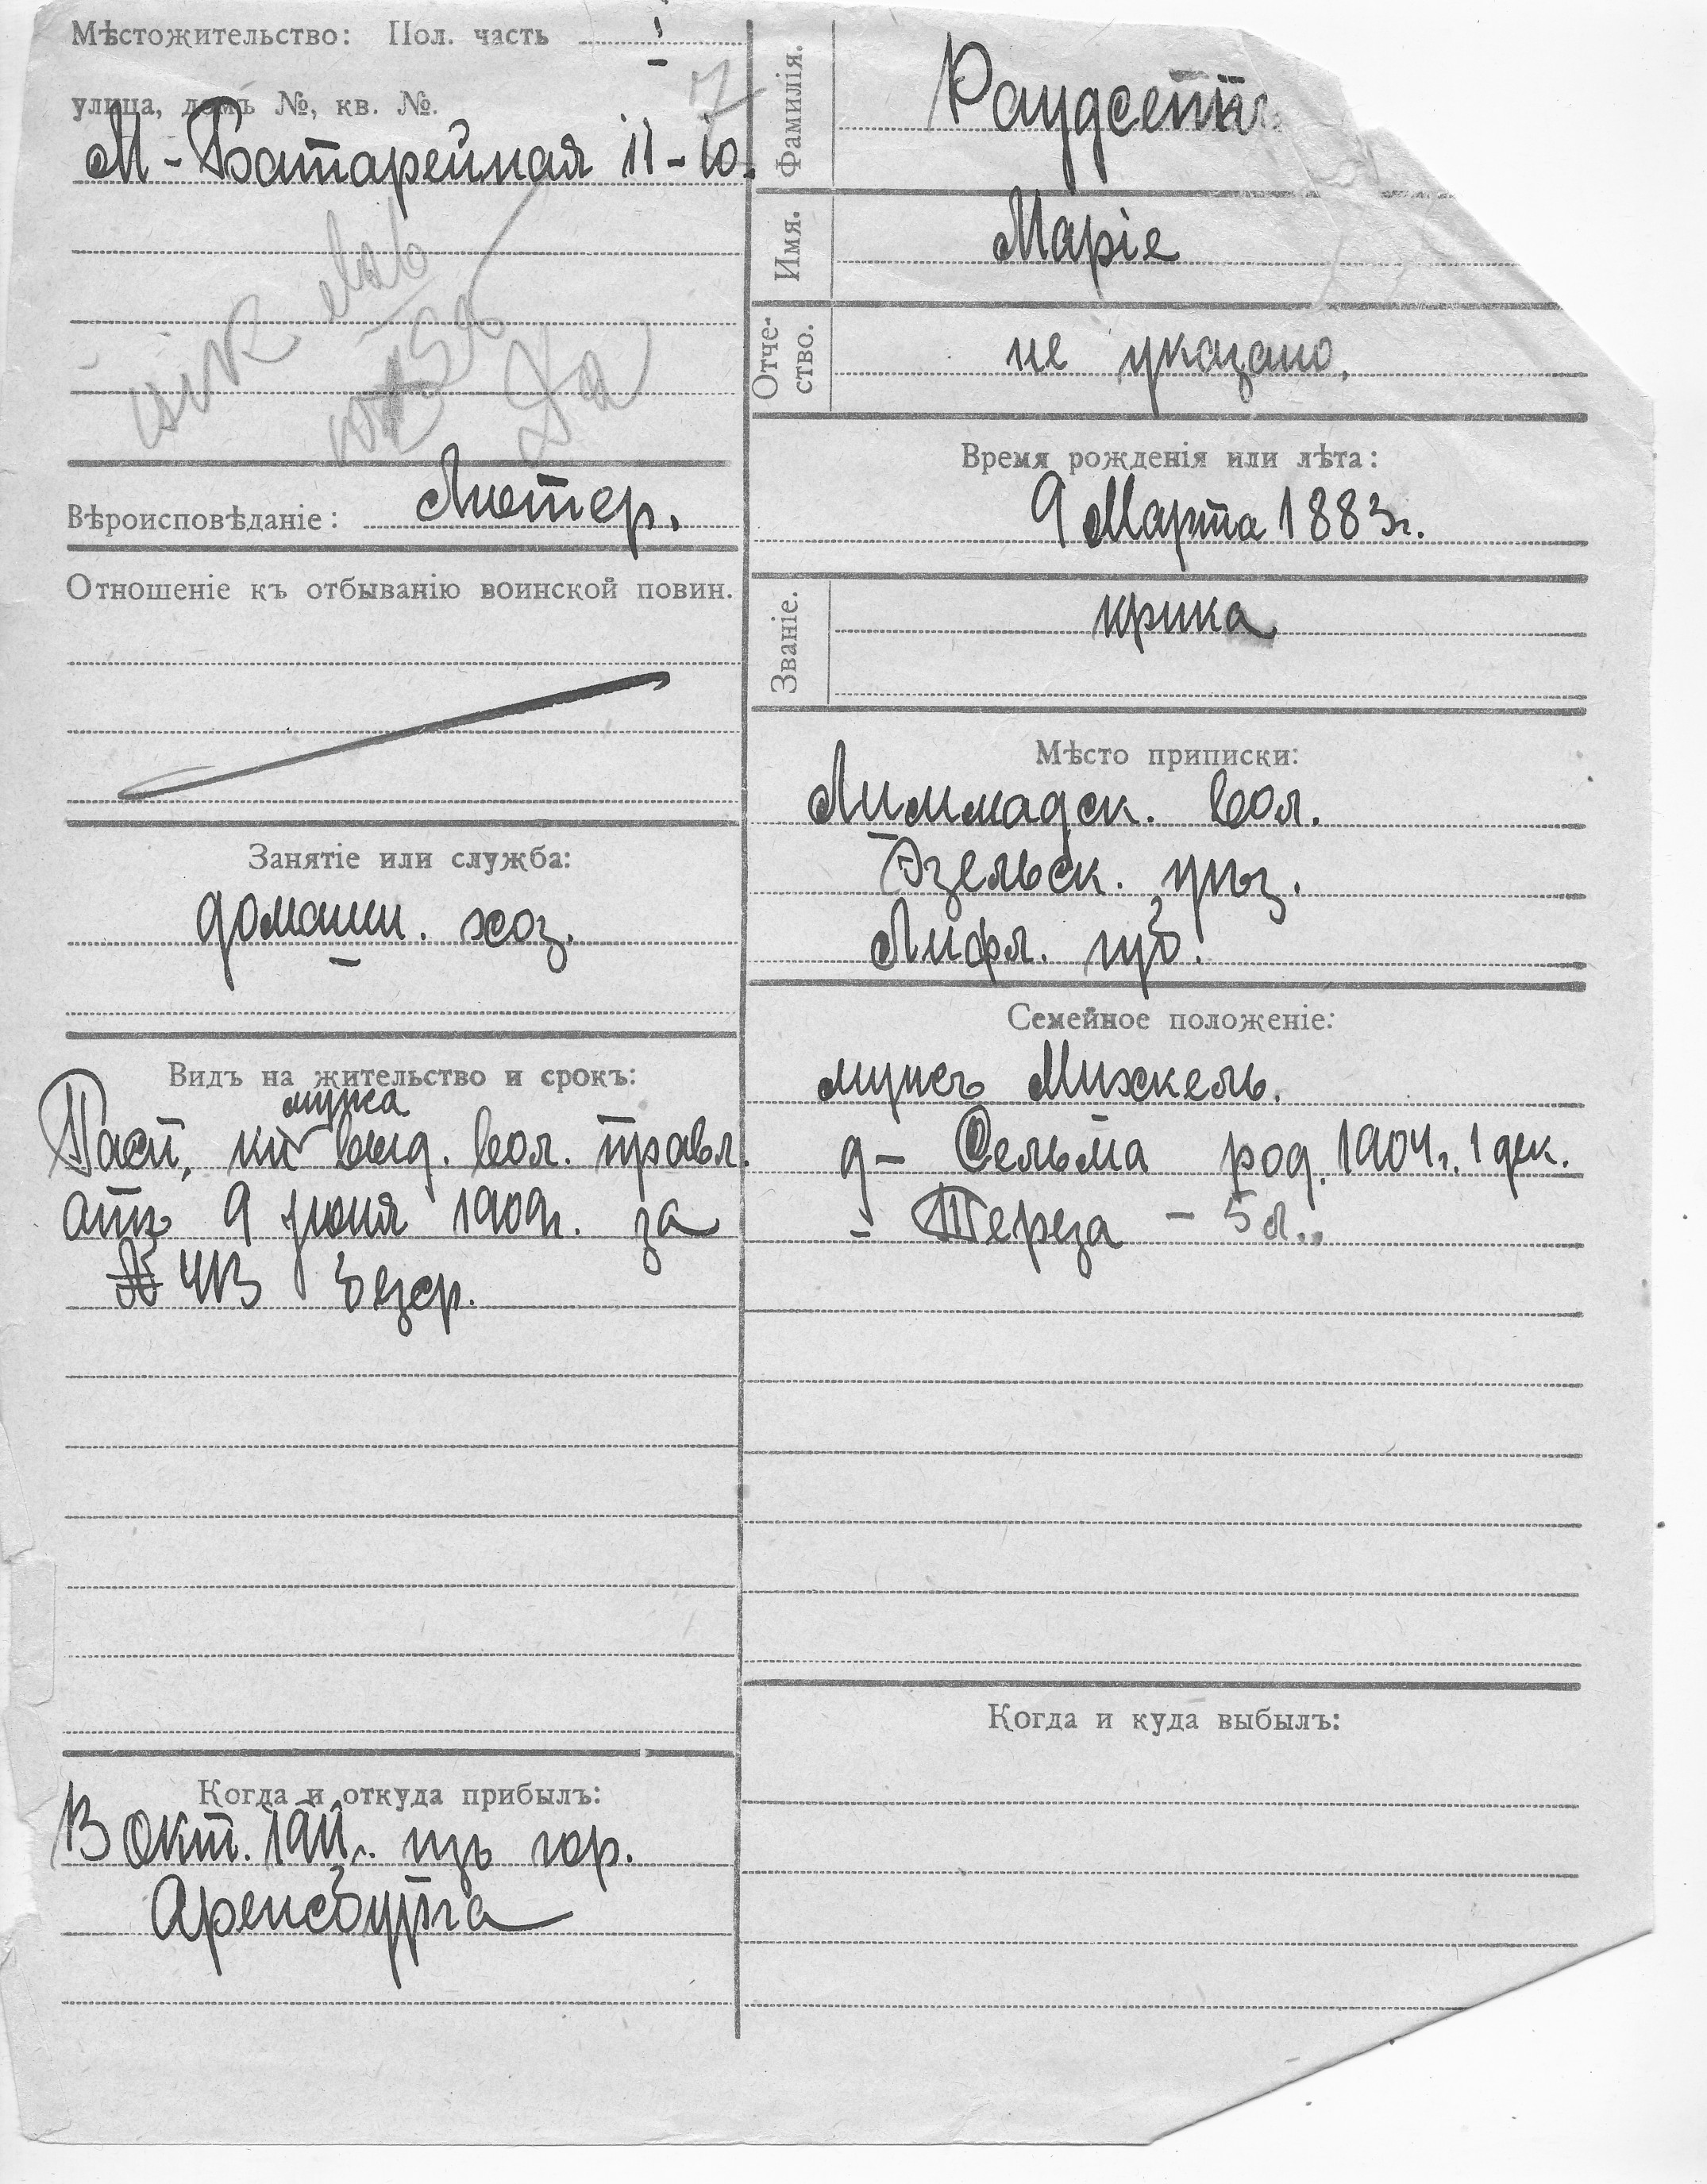 Мѣстожительство: Пол. часть
улица, домъ №, кв. №.
М-Батарейная 11-10.
Вѣроисповѣданіе: Лютер.
Отношеніе къ отбыванію воинской повин.
Занятіе или служба:
домашн. хоз.
Видъ на жительство и срокъ:
мужа
Пасп. кн выд. вол. правл.
отъ 9 Іюня 1909г. за
№ 413 безср.
Когда и откуда прибылъ:
В окт. 1911г. изъ гор.
Аренсбурга
Фамилія. Раудсепп
Имя. Маріе
Отче-
ство. не указано.
Время рожденія или лѣта:
9 Марта 1883г.
Званіе. крика
Мѣсто приписки:
Лиммадск. вол.
Эзельск. уѣз.
Лифл. губ.
Семейное положеніе:
мужъ Михкель.
д- Сельма род. 1904г. 1 дек.
Тереза - 5 л.
Когда и куда выбылъ: